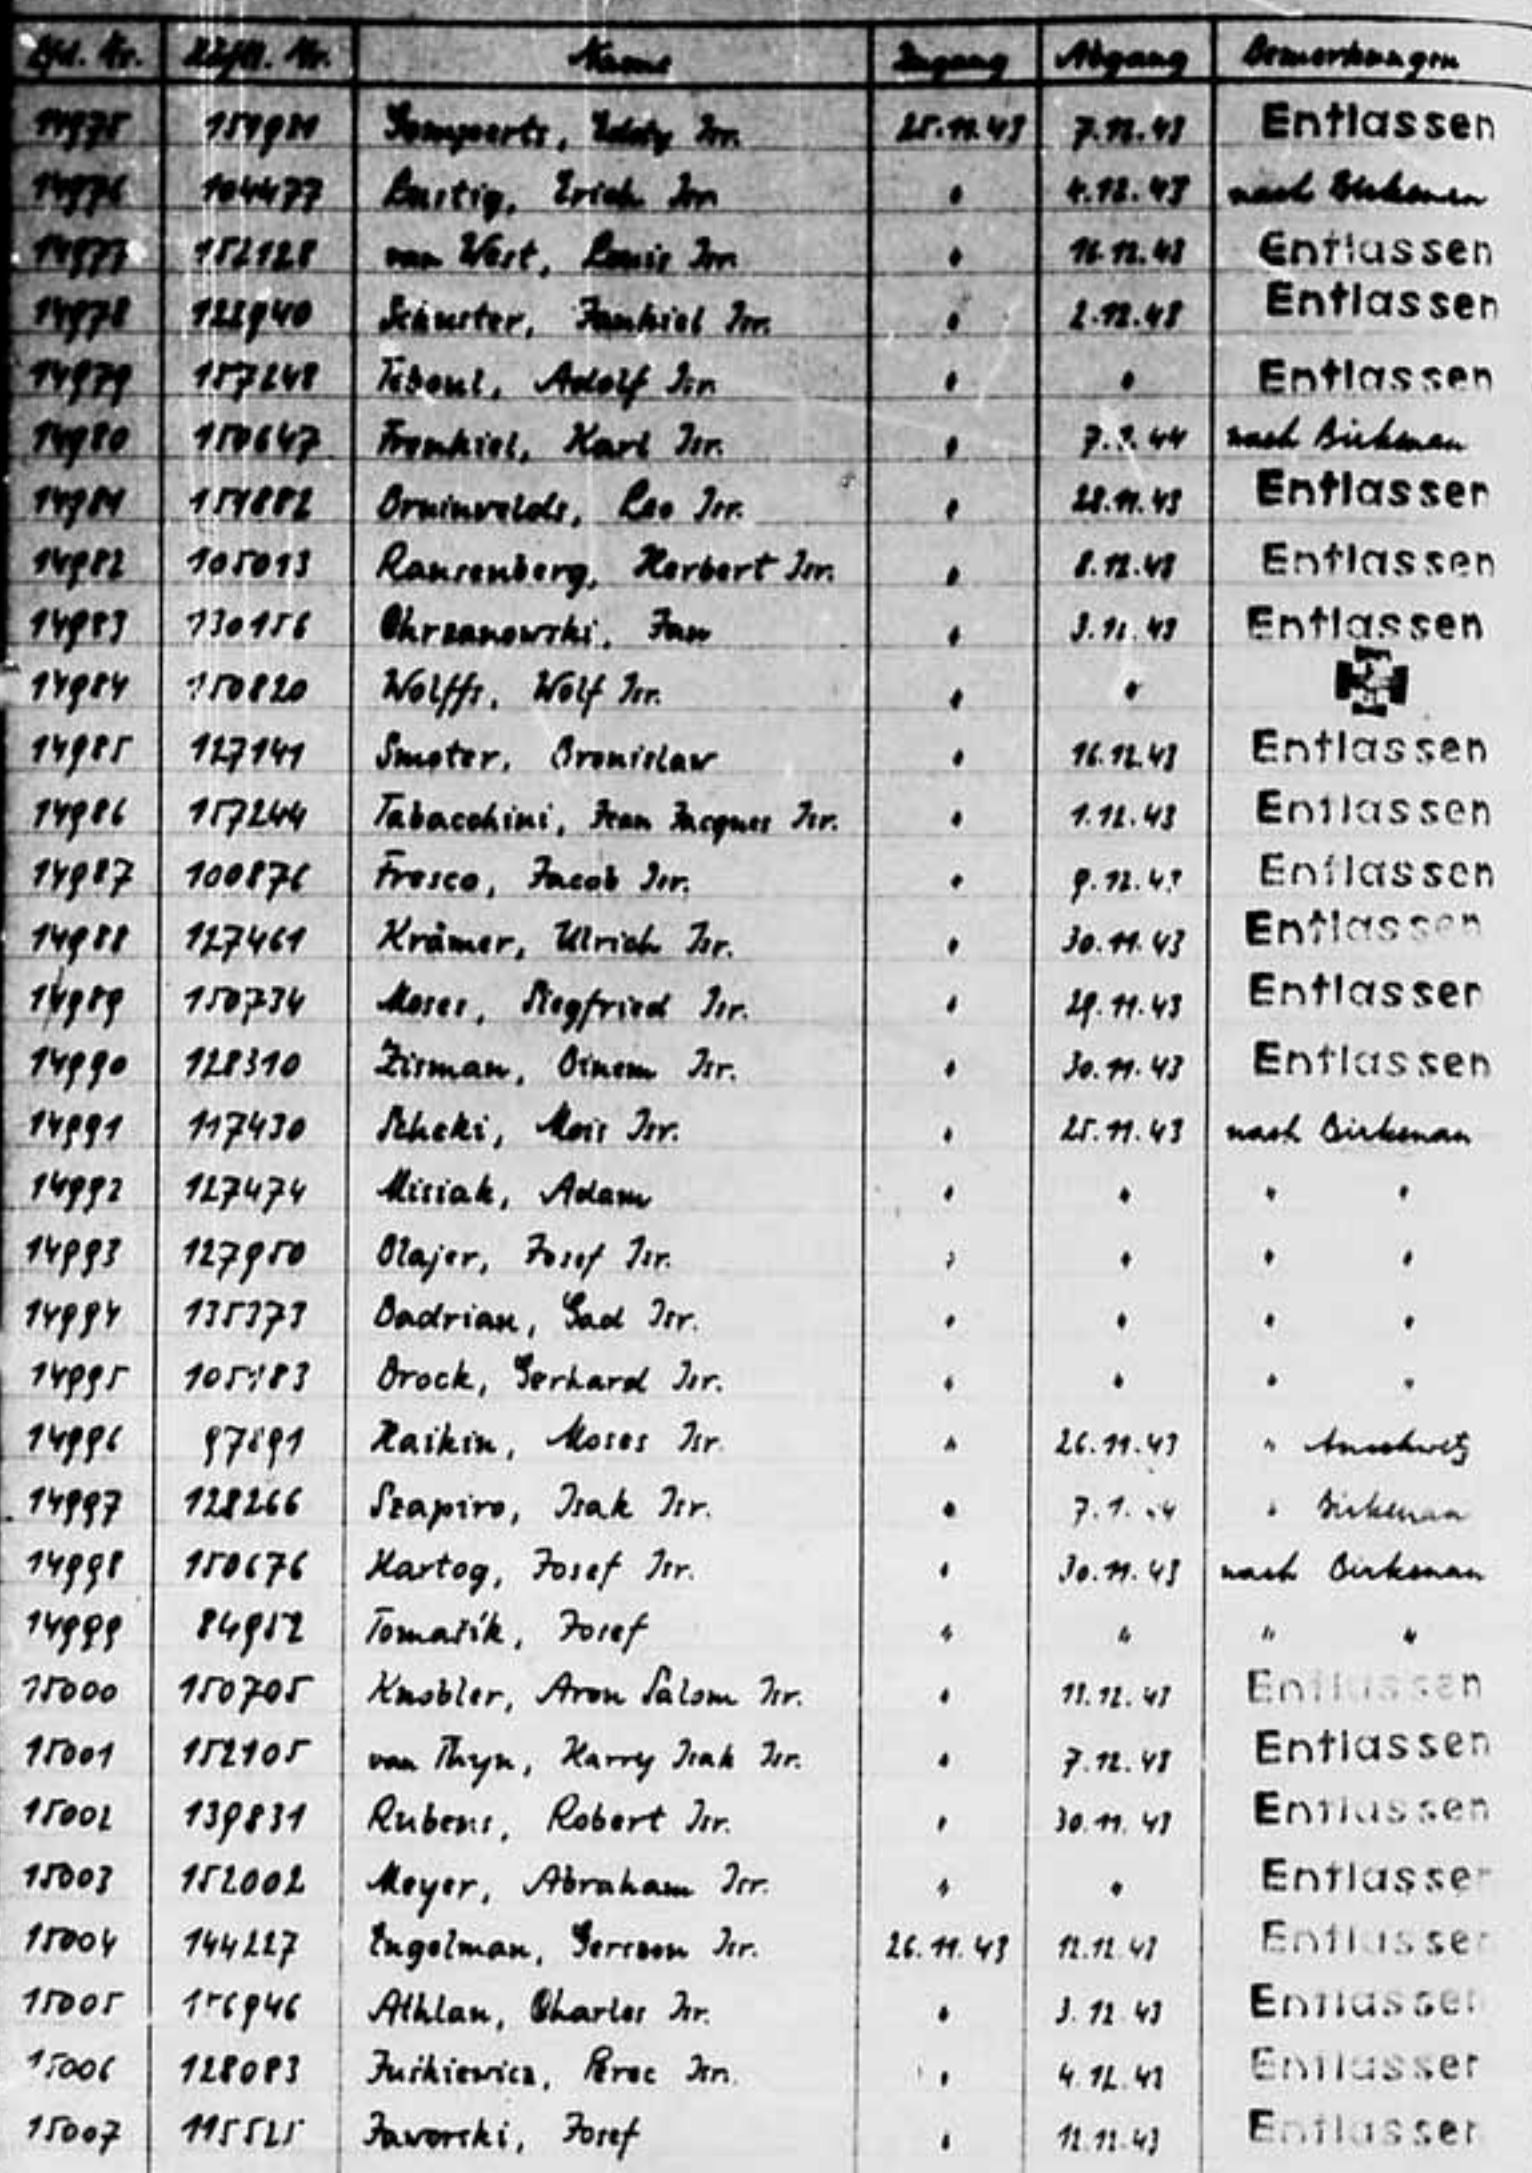 Lfd. Nr. Häftl. Nr. Name Zugang Abgang Bemerkungen
14975 Gomperts, Eddy Isr. 25.11.43 7.12.43 Entlassen
14976 104477 Lustig, Erich Isr. " 4.12.43 nach Birkenau
14977 152128 van West, Louis Isr. " 16.12.43 Entlassen
14978 Schuster, Jankiel Isr. " 2.12.43 Entlassen
14979 157248 Teboul, Adolf Isr. " " Entlassen
14980 150647 Frenkiel, Karl Isr. " nach Birkenau
14981 151882 Bruinvelds, Leo Isr. " 28.11.43 Entlassen
14982 105013 Ransenberg, Herbert Isr. " 8.12.43 Entlassen
14983 130156 Chrzanowski, Jan " Entlassen
14984 150820 Wolffs, Wolf Isr. " "
14985 127141 Smoter, Bronislaw " 16.12.43 Entlassen
14986 157244 Tabacchini, Jean Jacques Isr. " 1.12.43 Entlassen
14987 100876 Fresco, Jacob Isr. " 9.12.43 Entlassen
14988 127461 Krämer, Ulrich Isr. " 30.11.43 Entlassen
14989 150734 Moses, Siegfried Isr. " 29.11.43 Entlassen
14990 128310 Zisman, Binem Isr. " 30.11.43 Entlassen
14991 117430 Mois Isr. " 25.11.43 nach Birkenau
14992 127474 Misiak, Adam " " " "
14993 127950 Olajer, Josef Isr. " " " "
14994 135373 Badrian, Gad Isr. " " " "
14995 Brock, Gerhard Isr. " " " "
14996 Haikin, Moses Isr. " 26.11.43 " Auschwitz
14997 128266 Szapiro, Isak Isr. " " Birkenau
14998 150676 Hartog, Josef Isr. " 30.11.43 nach Birkenau
14999 84952 Tomašik, Josef " " " "
15000 150705 Knobler, Aron Salom Isr. " Entlassen
15001 152105 van Thyn, Harry Isak Isr. " 7.12.43 Entlassen
15002 139831 Rubens, Robert Isr. " 30.11.43 Entlassen
15003 152002 Meyer, Abraham Isr. " " Entlassen
15004 144227 Engelman, Gerson Isr. 26.11.43 12.12.43 Entlassen
15005 Athlan, Charles Isr. " 3.12.43 Entlassen
15006 128083 Juśkiewicz, Perec Isr. " 4.12.43 Entlassen
15007 115525 Jaworski, Josef " 12.12.43 Entlassen